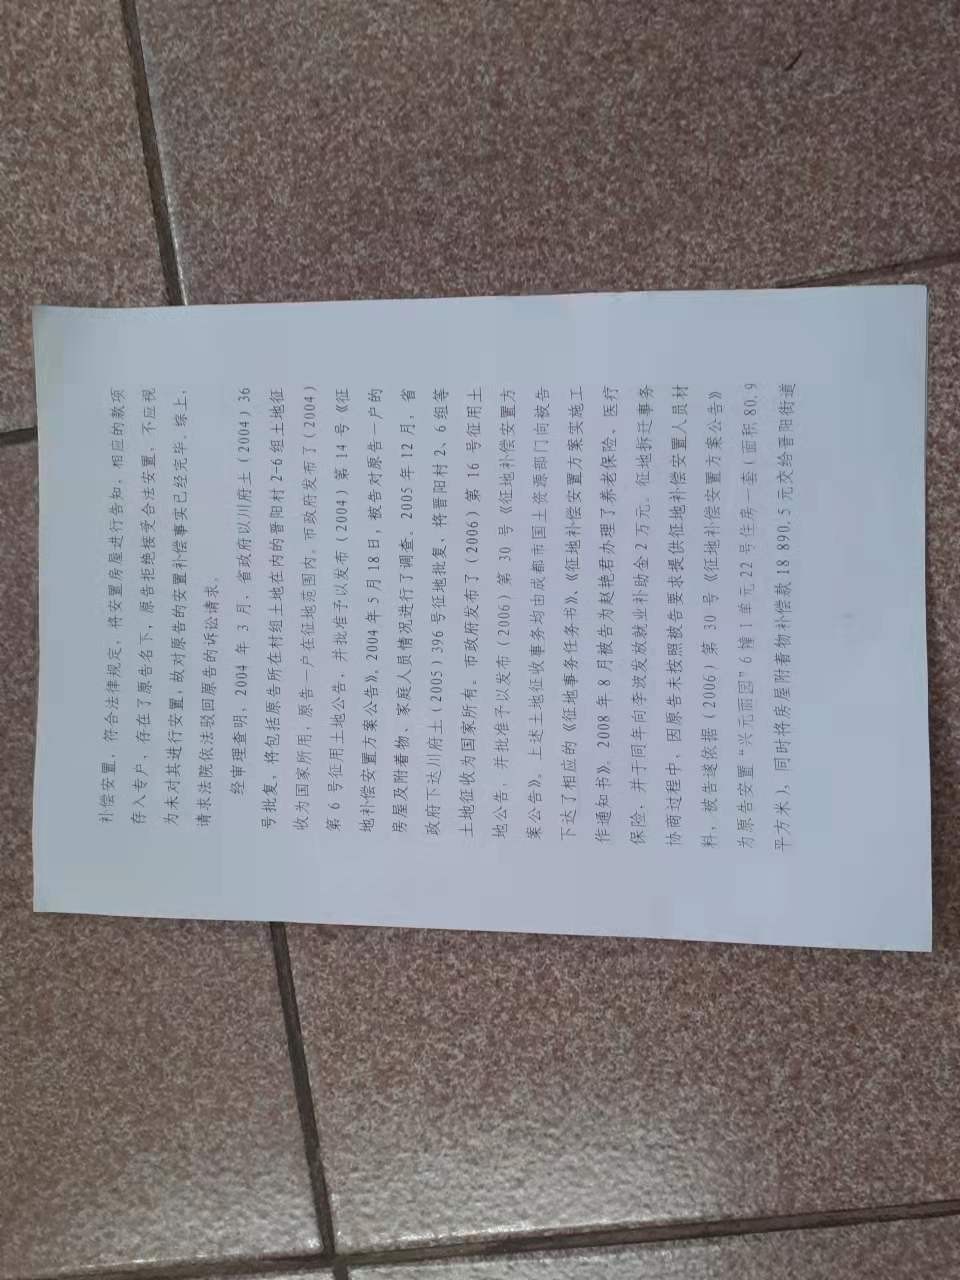 补偿安置，符合法律规定，将安置房屋进行告知，相应的款项
存入专户，存在了原告名下，原告拒绝接受合法安置，不应视
为未对其进行安置，故对原告的安置补偿事实已经完毕。综上，
请求法院依法驳回原告的诉讼请求。
经审理查明，2004 年 3 月，省政府以川府土（2004）36
号批复，将包括原告所在村组土地在内的晋阳村 2-6 组土地征
收为国家所用，原告一户在征地范围内。市政府发布了（2004）
第 6 号征用土地公告，并批准予以发布（2004）第 14 号《征
地补偿安置方案公告》。2004 年 5 月 18 日，被告对原告一户的
房屋及附着物、家庭人员情况进行了调查。2005 年 12 月，省
政府下达川府土（2005）396 号征地批复，将晋阳村 2、6 组等
土地征收为国家所有。市政府发布了（2006）第 16 号征用土
地公告，并批准予以发布（2006）第 30 号《征地补偿安置方
案公告》。上述土地征收事务均由成都市国土资源部门向被告
下达了相应的《征地事务任务书》、《征地补偿安置方案实施工
作通知书》。2008 年 8 月被告为赵艳君办理了养老保险、医疗
保险，并于同年向李波发放就业补助金 2 万元。征地拆迁事务
协商过程中，因原告未按照被告要求提供征地补偿安置人员材
料，被告遂依据（2006）第 30 号《征地补偿安置方案公告》
为原告安置“兴元丽园”6 幢 1 单元 22 号住房一套（面积 80.9
平方米），同时将房屋附着物补偿款 18 890.5 元交给晋阳街道